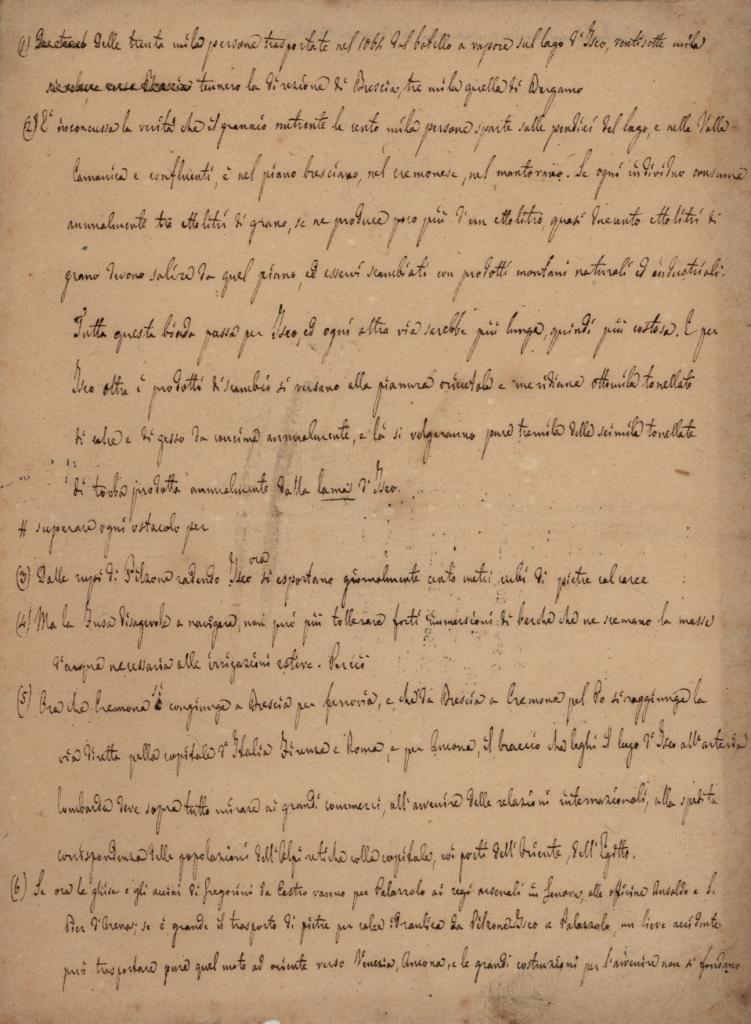 (1) Delle trenta mila persone trasportate nel 1864 dal batello a vapore sul lago d'Iseo, ventisette mila
tennero la direzione di Brescia, tre mila quella di Bergamo
(2) E' inconcussa la verità che il granaio nutriente le cento mila persone sparte sulle pendici del lago, e nella Valle
Camonica e confluenti, è nel piano bresciano, nel cremonese, nel mantovano. Se ogni individuo consuma
annualmente tre ettolitri di grano, se ne produce poco più d'un ettolitro, quasi duecento ettolitri di
grano devono salire da quel piano, ed esservi scambiati con prodotti montani naturali ed industriali.
Tutta questa biada passa per Iseo, ed ogni altra via sarebbe più lunga, quindi più costosa. E per
Iseo oltre i prodotti di scambio si versano alla pianura orientale e meridiana ottomila tonellate
di calce e di gesso da concime annualmente, e là si volgeranno pure tremila delle seimila tonellate
di torba prodotta annualmente dalla lama d'Iseo.
# superare ogni ostacolo per
(3) Dalle rupi di Pilzone radendo Iseo ora si esportano giornalmente cento metri cubi di pietre calcaree
(4) Ma la Fusa disagevole a navigare, non può più tollerare forti immersioni di barche che ne scemano la massa
d'acqua necessaria alle irrigazioni estive. Perciò
(5) Ora che Cremona si congiunge a Brescia per ferrovia, e che da Brescia a Cremona pel Po si raggiunge la
via diretta pella capitale d'Italia Firenze e Roma, e per Ancona, il braccio che leghi il lago d'Iseo all'arteria
lombarda deve sopra tutto mirare ai grandi commerci, all'avvenire delle relazioni internazionali, alla spedita
corrispondenza delle popolazioni dell'Alpi retiche colla capitale, coi porti dell'Oriente, dell'Egitto.
(6) Se ora le ghise e gli acciai di Gregorini da Castro vanno per Palazzolo ai regi arsenali in Genova, alle officine Ansaldo e S.
Pier d'Arena; se è grande il trasporto di pietre per calce idraulica da Pilzone Iseo a Palazzolo, un lieve accidente
può trasportare pure quel moto ad oriente verso Venezia, Ancona, e le grandi costruzioni per l'avvenire non si fondano